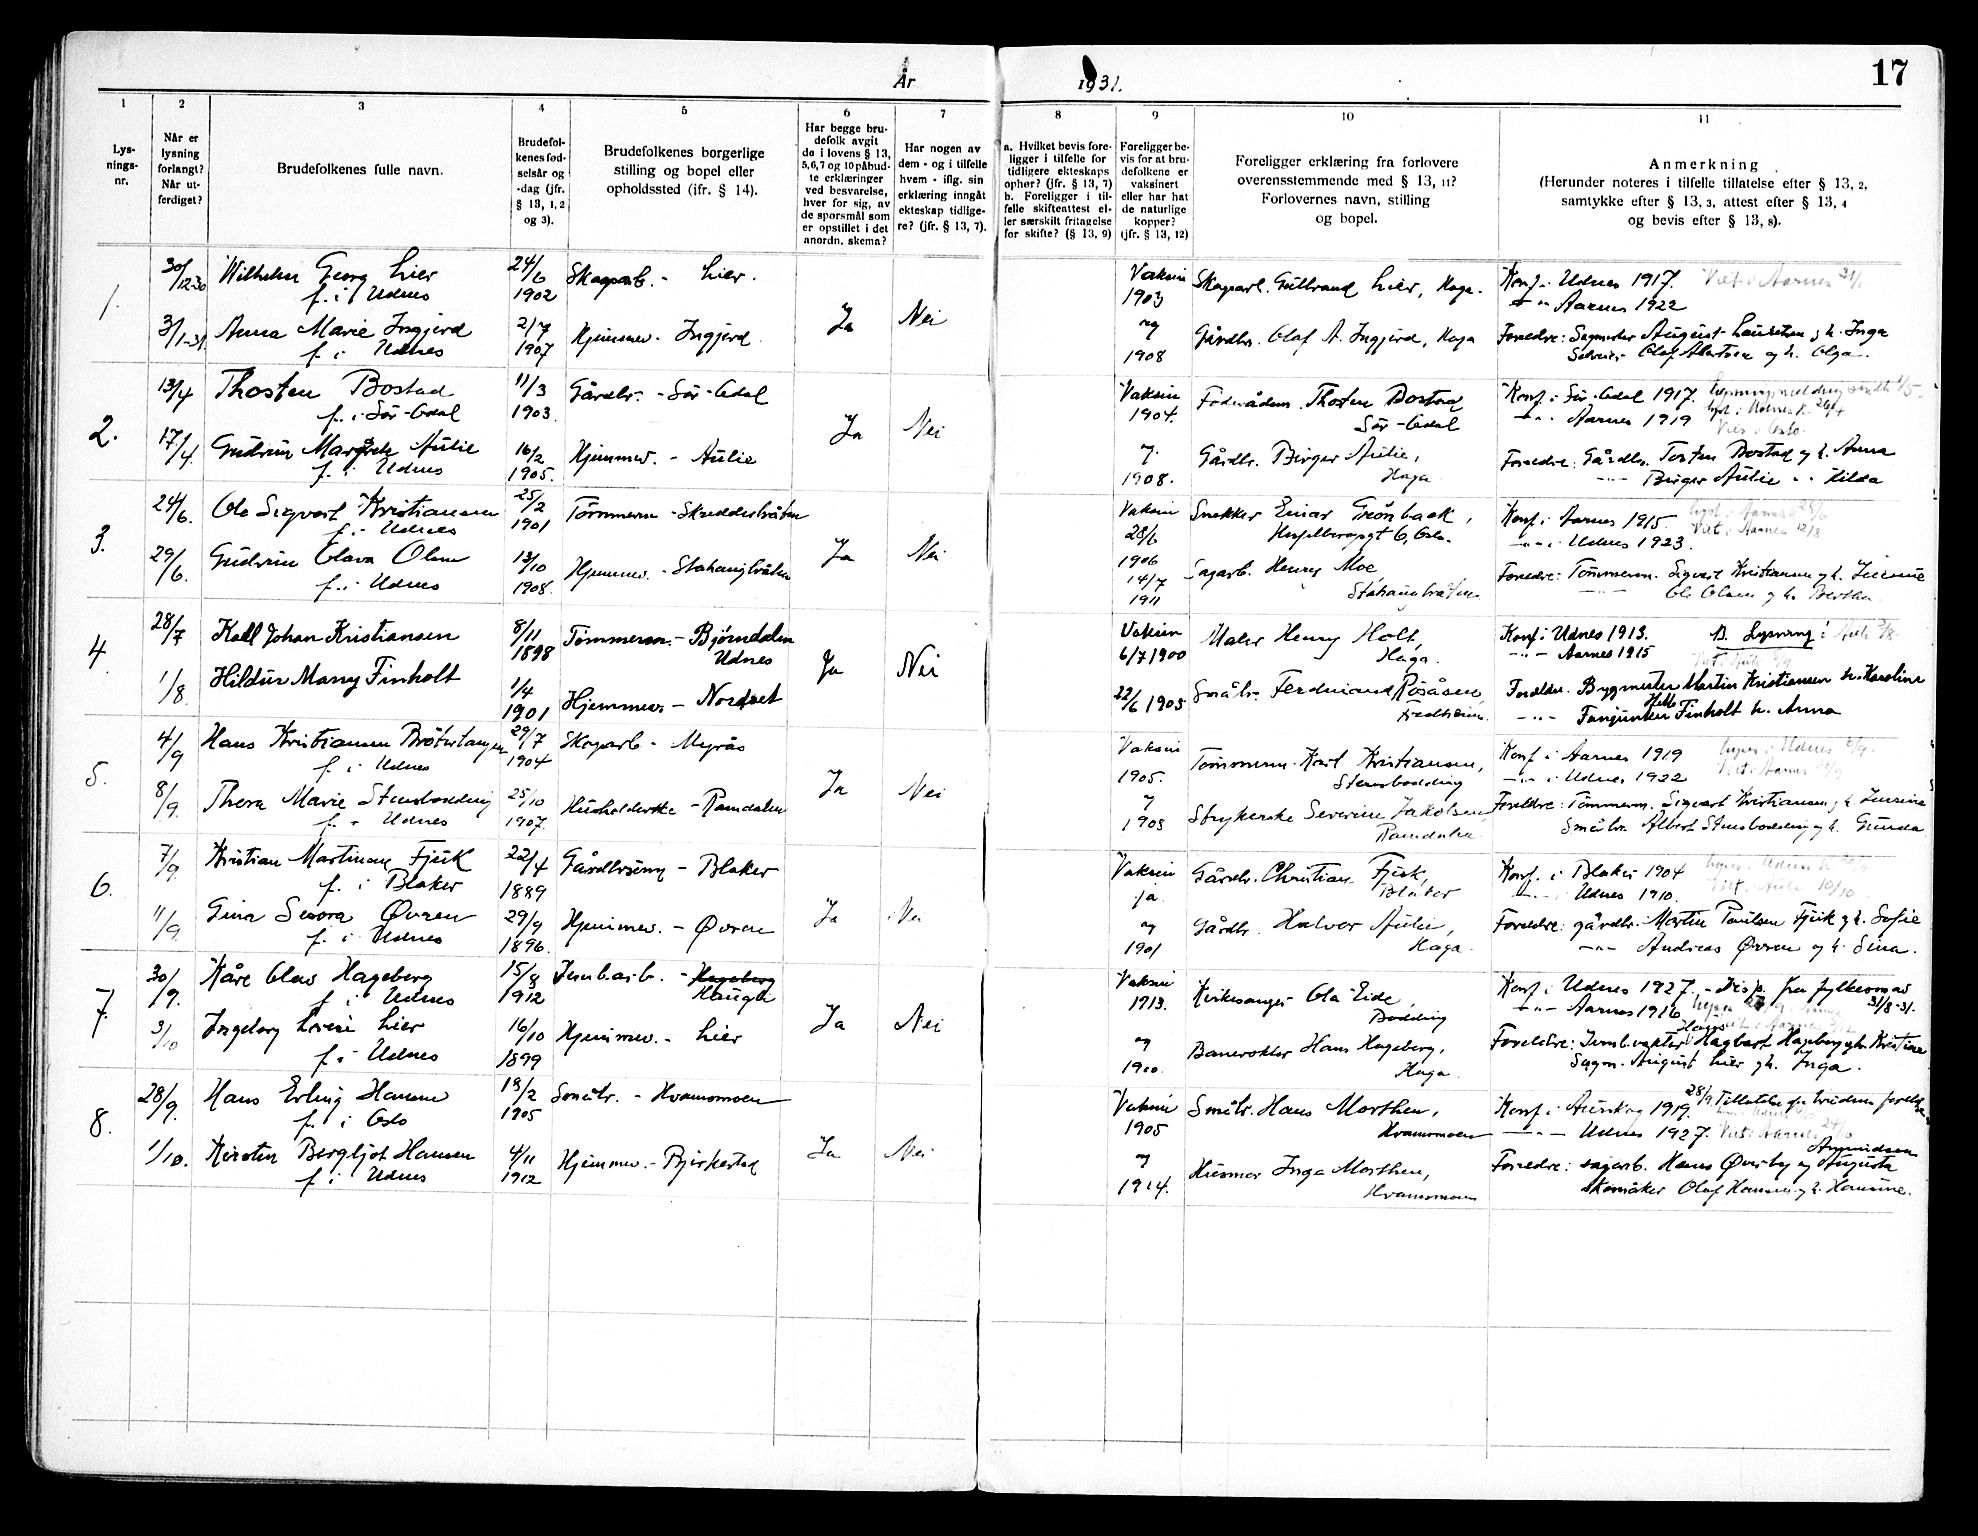 År 1931.
17
1 2 3 4 5 6 7 8 9 10 11
Lys-
nings-
nr.
Når er
lysning
forlangt?
Når ut-
ferdiget?
Brudefolkenes fulle navn.
Brudefol-
kenes fød-
selsår og
-dag (jfr.
§ 13, 1, 2
og 3).
Brudefolkenes borgerlige
stilling og bopel eller
opholdssted (ifr. § 14).
Har begge bru-
defolk avgit
de i lovens § 13,
5,6,7 og 10 påbud-
te erklæringer
ved besvarelse,
hver for sig, av
de spørsmål som
er opstillet i det
anordn. skema?
Har nogen av
dem - og i tilfelle
hvem - iflg. sin
erklæring inngåt
ekteskap tidlige-
re? (jfr. § 13, 7).
a. Hvilket bevis fore-
ligger i tilfelle for
tidligere ekteskaps
ophør? (jfr. § 13, 7)
b. Foreligger i til-
felle skifteattest el-
ler særskilt fritagelse
for skifte? (§ 13, 9)
Foreligger be-
vis for at bru-
defolkene er
vaksinert
eller har hat
de naturlige
kopper?
(jfr. § 13, 12)
Foreligger erklæring fra forlovere
overensstemmende med § 13, 11?
Forlovernes navn, stilling
og bopel.
Anmerkning
(Herunder noteres i tilfelle tillatelse efter § 13, 2,
samtykke efter § 13, 3, attest efter § 13, 4
og bevis efter § 13, 8).
1. 30/12-30 Wilhelm Georg Lier 24/6 Skogarb. - Lier. Vaksin Skogarb. Gulbrand Lier, Haga. Konf. i Udnes 1917. Viet i Aarnes 31/1
f. i Udnes 1902 Ja Nei 1903 - " - Aarnes 1922
3/1-31 Anna Marie Ingjerd 2/7 Hjemmev. - Ingjerd. og Gårdbr. Olaf A. Ingjerd, Haga Foreldre: Sagmester August Lauritsen og h. Inga
f. i Udnes 1907 1908 Olaf Albertsen og h. Olga.
2. 13/4 Thosten Bostad 11/3 Gårdbr. - Sør-Odal Vaksin Føderådsm. Thosten Bostad Konf. i Sør-Odal 1917.
f. i Sør-Odal 1903. Ja Nei 1904. Sør-Odal - " - Aarnes 1919
17/4 Gudrun Margrete Aulie 16/2 Hjemmev. - Aulie og Gårdbr. Birger Aulie, Foreldre: Gårdbr. Tosten Bostad og h. Anna
f. i Udnes 1905. 1908. Haga - " - Birger Aulie " " Hilda
3. 24/6. Ole Sigvart Kristiansen 25/2 Tømmerm - Vaksin Snekker Einar Grønbaek, Konf. i Aarnes 1915.
f. i Udnes 1901 28/6 6, Oslo. - " - i Udnes 1923. Viet i Aarnes 12/8
29/6. Gudrun Olava Olsen 13/10 Hjemmev. - Stahaugbråten Ja Nei 1906 Sagarb. Henry Moe Foreldre: Tømmerm. Sigvart Kristiansen og h.
f. i Udnes 1908. 14/7 1911 Stahaugbråten Ole Olsen og h. Bertha
4. 28/7 Kall Johan Kristiansen 8/11 Tømmerm. - Bjørndalen Vaksin Maler Henry Holt, Konf. i Udnes 1913. Lysning i
1898 Udnes Ja Nei 6/7 1900 Haga. - " - Aarnes 1915
1/8 Hildur Marry Finholt 1/4 Hjemmev. - Nordset 22/6 1905 Småbr. Ferdinand Røsåsen, Foreldre. Bygmester Martin Kristiansen h. Karoline
1901 - " - Finholt h. Anna
5. 4/9 Hans Kristiansen Bråterlangen 29/7 Skogarb - Myrås Vaksin Tømmerm. Karl Kristiansen, Konf. i Aarnes 1919
f. i Udnes 1904 1905. Stensbodding - " - i Udnes 1922
8/9. Thera Marie Stensbodding 25/10 Husholderske - Ramdalen Ja Nei og Strykerske Severine Jakobsen Foreldre: Tømmerm. Sigvart Kristiansen og h.
f. i Udnes 1907. 1905 Ramdalen Småbr. Albert Stensbodding og h. Gunda
6. 7/9. Kristian Martinsen Fjuk 22/4 Gårdbr.sønn - Blaker Vaksin Gårdbr. Christian Fjuk, Konf. i Blaker 1904
f. i Blaker 1889 ja Blaker - " - Udnes 1910.
11/9. Gina Øvren 29/9 Hjemmev. - Øvren Ja Nei og Gårdbr. Halvor Aulie, Foreldre: gårdbr. Martin Paulsen Fjuk og h. Sofie
f. i Udnes 1896. 1901 Haga. - " - Andreas Øvren og h. Sina.
7. 30/9. Kåre Olas Hageberg 15/8 Jernb.arb. - Hageberg Vaksin Kirkesanger Ola Eide, Konf. i Udnes 1927. - Disp. fra fylkesmas
f. i Udnes 1912 Haugli 1913. Bodding - " - Aarnes 1916 31/8-31.
3/10 Ingeborg Lier 16/10 Hjemmev. - Lier Ja Nei og Banevokter Hans Hageberg, Foreldre: Jernb.vakter Hagbart Hageberg og h. Kristine
f. i Udnes 1899 1900. Haga Sagm. August Lier og h. Inga.
8. 28/9. Hans Erling Hansen 19/2 Småbr. - Hvamsmoen Vaksin Småbr. Hans Morthen, Konf. i Aurskog 1919. 28/9. Tillatelse fra brudens foreldre
f. i Oslo 1905 1905 Hvamsmoen - " - Udnes 1927. Viet i Aarnes
1/10. Kirstin Bergljot Hansen 4/11 Hjemmev. - Bjirkestad Ja Nei og Husmor Inga Morthen, Foreldre: sagarb. Hans Øverby og Augusta
f. i Udnes 1912 1914. Hvamsmoen Skomaker Olaf Hansen og h. Hansine.